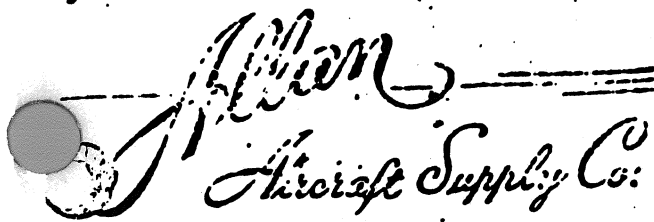 Allien
Aircraft Supply Co.